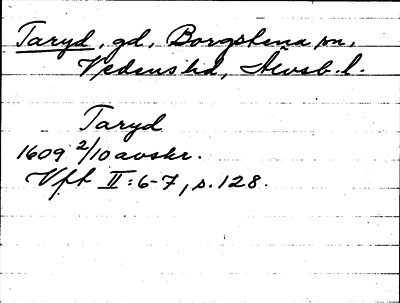 Taryd, gd, Borgstena sn,
Vedens hd, Älvsb. l.
Taryd
1609 2/10 avskr.
Vft II:6-7, s. 128.